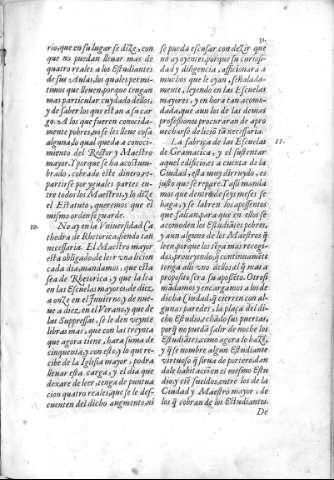 31.
rio, que en su lugar se dize, con
que no puedan lleuar mas de
quatro reales a los Estudiantes
de sus Aulas, los quales permi-
timos que lleuen, porque tengan
mas particular cuydado dellos,
y de saber los que estan a su car-
go. A los que fueren conocida-
mente pobres, no se les lleue cosa
alguna, lo qual queda a conoci-
miento del Retor y Maestro
mayor. Y porque se ha acostum-
brado, cobrado este dinero, re-
partirse por yguales partes en-
tre todos los Maestros, y lo dize
el Estatuto, queremos que el
mismo orden se guarde.
10. No ay en la Vniuersidad Ca
thedra de Rhetorica, siendo tan
necessaria. El Maestro mayor
està obligado de leer vna licion
cada dia, mandamos, que esta
sea de Rhetorica, y que la lea
en las Escuelas mayores, de diez
a onze en el Inuierno, y de nue-
ue a diez, en el Verano, y que de
las Suppressas, se le den veynte
libras mas, que con las treynta
que agora tiene, hara suma de
cinquenta, y con esto, y lo que re-
cibe de la Iglesia mayor, podra
lleuar esta carga, y el dia que
dexare de leer, tenga de puntua
cion quatro reales, que se le des-
cuenten del dicho augmento, ni
se pueda escusar con dezir que
no ay oyentes, porque su curiosi-
dad y diligencia, afficionarà a
muchos que le oyan, señalada-
mente, leyendo en las Escuelas
mayores, y en hora tan acomo-
dada, que aun los de las demas
professiones procuraran de apro
uecharse de licion tā necessaria.
11. La fabrica de las Escuelas
de Gramatica, y el sustentar
aquel edificio, es a cuenta de la
Ciudad, està muy derruydo, es
justo que se repare. Y assi manda
mos que dentro de seys meses se
haga, y se labren los aposentos
que
para que en ellos se
acomoden los Estudiātes pobres,
y aun algunos de los Maestros q̄
leen, porque los tiga mas recogi-
dos, procurendo, q̄ continuamēte
tenga alli vno dellos al q̄ mas a
proposito sera su aposēto. Otrosi
mādamos y encargamos a los de
dicha Ciudad, q̄ cierren con al-
gunas paredes, la plaça del di-
cho Estudio, echādo sus puertas,
porq̄ no puedā salir de noche los
Estudiātes, como agora lo hazē,
y q̄ se nombre algun Estudiante
virtuoso q̄ sirua de portero, dan
dole habitaciōn en el mesmo Estu
dio, y en sueldos, entre los de la
Ciudad y Maestro mayor, de
los q̄ cobran de los Estudiantes.
De